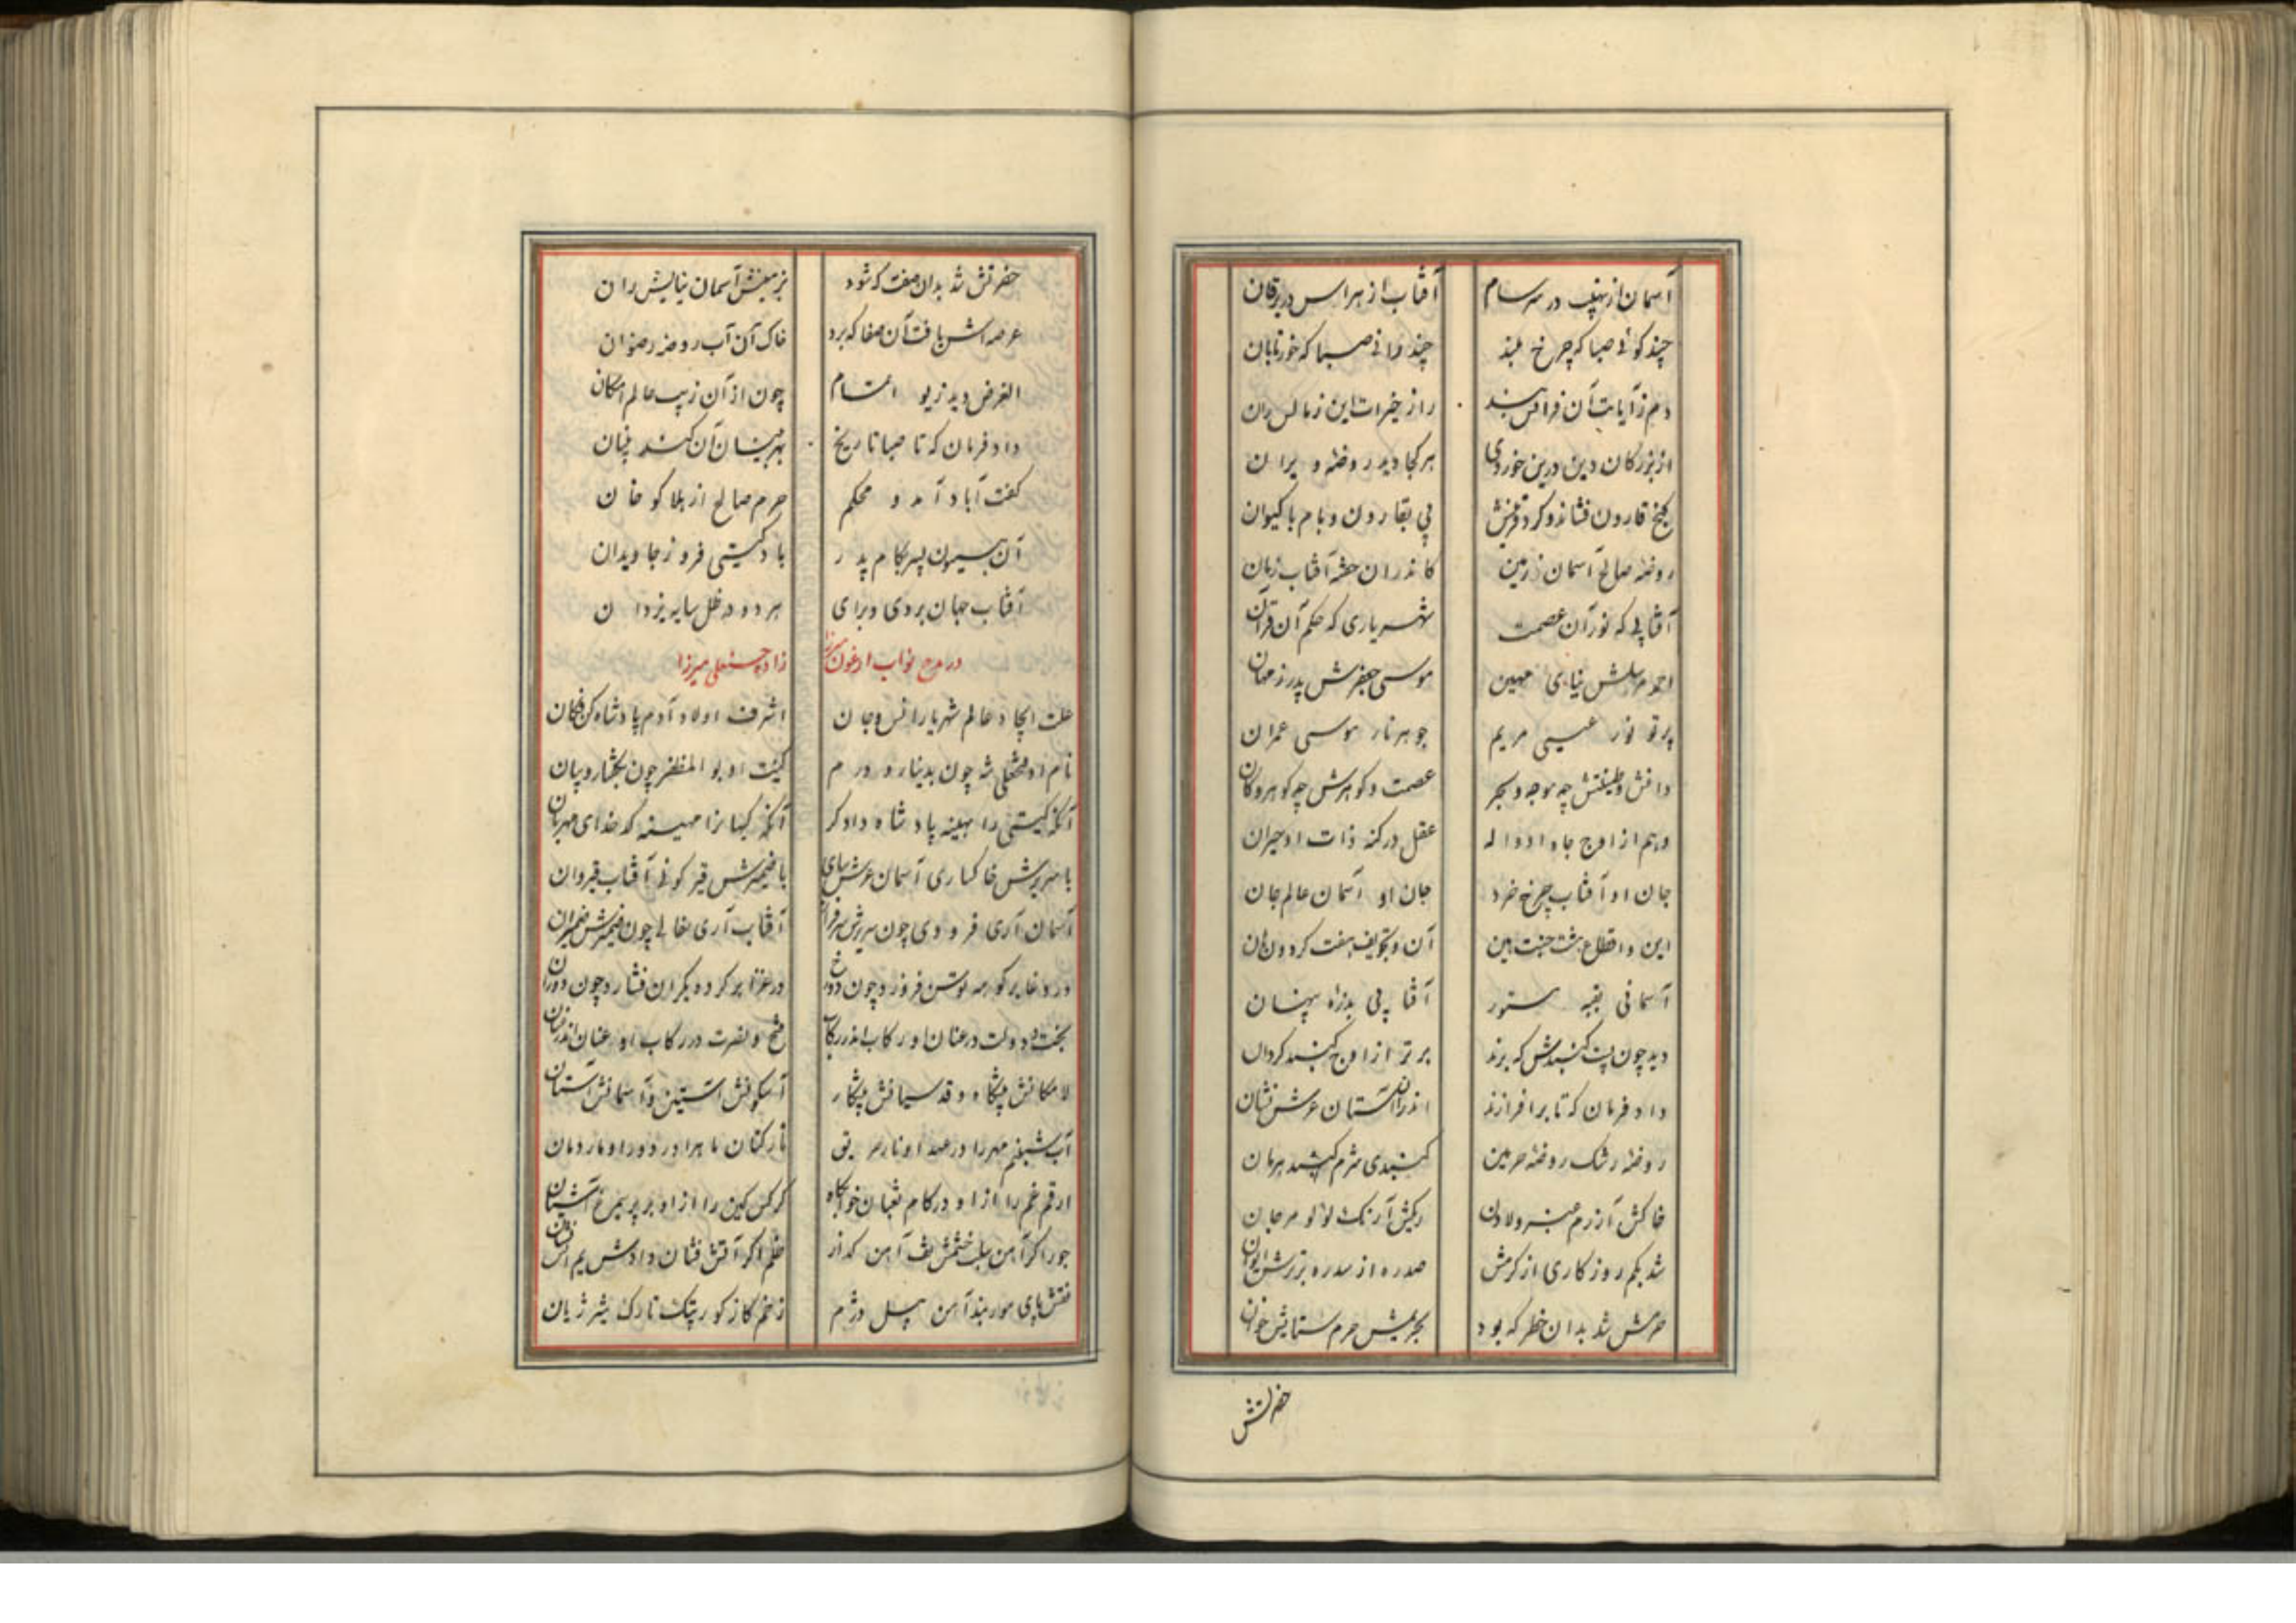 آسمان از نهیب در سرسام آفتاب از هراس در یرقان
چند کوئی صبا که چرخ بلند چند رانی صبا که خور تابان
دم ز آیات آن فراکس بند راز خیرات این زبالس ران
از بزرکان دین درین خوردی هر کجا دید روضه ویران
کنج قارون فشاند و کرد پی بقارون و بام با کیوان
روضه صالح آسمان زمین کاندران آفتاب
آفتابی که نور آن عصمت شهریاری که حکم آن قرآن
احمد مرسلش نیای مهین موسی جعفرش پدر ز مهان
پرتو نور عیسی مریم جوهر نار موسی عمران
دانش و طینتش چه موجه و بحر عصمت و کوهرش چه کوهر و کان
وهم از اوج جاه او واله عقل در کنه ذات او حیران
جان او آفتاب چرخ خرد جان او آسمان عالم جان
این و اقطاع هشت جنت بین آن و تجویف هفت کردون دان
آسمانی بقبه مستور آفتابی بذره پنهان
دید چون پست کنبدش که برند برتر از اوج کنبد کردان
داد فرمان که تا برافرازند اندران آستان عرش نشان
روضه رشک روضه حرمین کنبدی شرم کنبد هرمان
خاکش آزرم عنبر و لادن ریکش آرنک لؤلؤ مرجان
شد بکم روزکاری از کرمش صدره از سدره برترش ایوان
حرمش شد بدان خطر که بود بحریمش حرم ستایش خوان
حضرتش
حضرتش شد بدان صفت که شود بزمینش آسمان نیایش ران
عرصه اش یافت آن صفا که برد خاک آن آب روضه رضوان
الغرض دید زیو اتمام چون از آن زیب عالم امکان
داد فرمان که تا صبا تاریخ بهر بنیان آن کند بنیان
کفت آباد آمد و محکم حرم صالح از هلاکو خان
آن همیون پسر بکام پدر باد کیتی فروز جاویدان
آفتاب جهان بروی و برای هر دو در ظل سایه یزدان
در مدح نواب ارغون میرزا زاده حسنعلی میرزا
علت ایجاد عالم شهریار انس و جان اشرف اولاد آدم پادشاه کن فکان
نام او فتحعلی شه چون بدینار و درم کنیت او بو المظفر چون بکفتار و بیان
آنکه کیتی را بهینه پادشاه دادکر آنکه کیهانرا مهینه کدخدای مهربان
با سریرش خاکساری آسمان عرش سای با ضمیرش قیرکونی آفتاب قیروان
آسمان آری فرودی چون سریرش سرفراز آفتاب آری بغالی چون ضمیرش
در وغا بر کور مه توسن فروزد چون در غزا بر کرده یکران فشارد چون دوران
بخت و دولت در عنان او رکاب اندر رکاب فتح و نصرت در رکاب او عنان اندر عنان
لا مکانش پیشکاه و قدسیانش پیشکار آسکونش آستین و آسمانش آستان
آب شبنم مهر را در عهد او نار حریق تار کتان ماه را در دور او مار دمان
ارقم غم را از او در کام ثعبان خوابکاه کرکس کین را از او بر پر سیمرغ آشیان
جور اکر آهن سلب خشمش تف آهن کداز ظلم اکر آتش فشان دادش یم آتش نشان
نقش پای مور بند آهن پیل دژم زخم کاز کور پتک تارک شیر ژیان